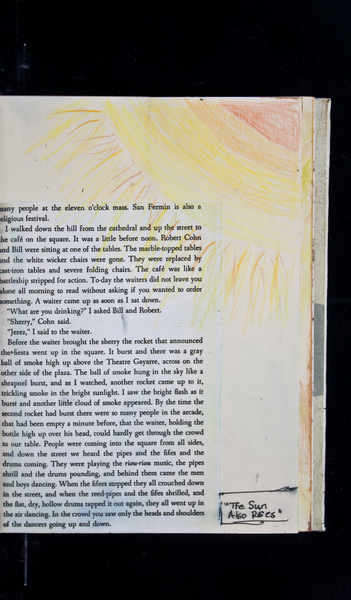 many people at the eleven o'clock mass. San Fermin is also a
religious festival.
I walked down the hill from the cathedral and up the street to
the café on the square. It was a little before noon. Robert Cohn
and Bill were sitting at one of the tables. The marble-topped tables
and the white wicker chairs were gone. They were replaced by
cast-iron tables and severe folding chairs. The café was like a
battleship stripped for action. To-day the waiters did not leave you
alone all morning to read without asking if you wanted to order
something. A waiter came up as soon as I sat down.
"What are you drinking?" I asked Bill and Robert.
"Sherry," Cohn said.
"Jerez," I said to the waiter.
Before the waiter brought the sherry the rocket that announced
the fiesta went up in the square. It burst and there was a gray
ball of smoke high up above the Theatre Gayarre, across on the
other side of the plaza. The ball of smoke hung in the sky like a
shrapnel burst, and as I watched, another rocket came up to it,
trickling smoke in the bright sunlight. I saw the bright flash as it
burst and another little cloud of smoke appeared. By the time the
second rocket had burst there were so many people in the arcade,
that had been empty a minute before, that the waiter, holding the
bottle high up over his head, could hardly get through the crowd
to our table. People were coming into the square from all sides,
and down the street we heard the pipes and the fifes and the
drums coming. They were playing the riau-riau music, the pipes
shrill and the drums pounding, and behind them came the men
and boys dancing. When the fifers stopped they all crouched down
in the street, and when the reed-pipes and the fifes shrilled, and
the flat, dry, hollow drums tapped it out again, they all went up in
the air dancing. In the crowd you saw only the heads and shoulders
of the dancers going up and down.
"The Sun
Also Rises"